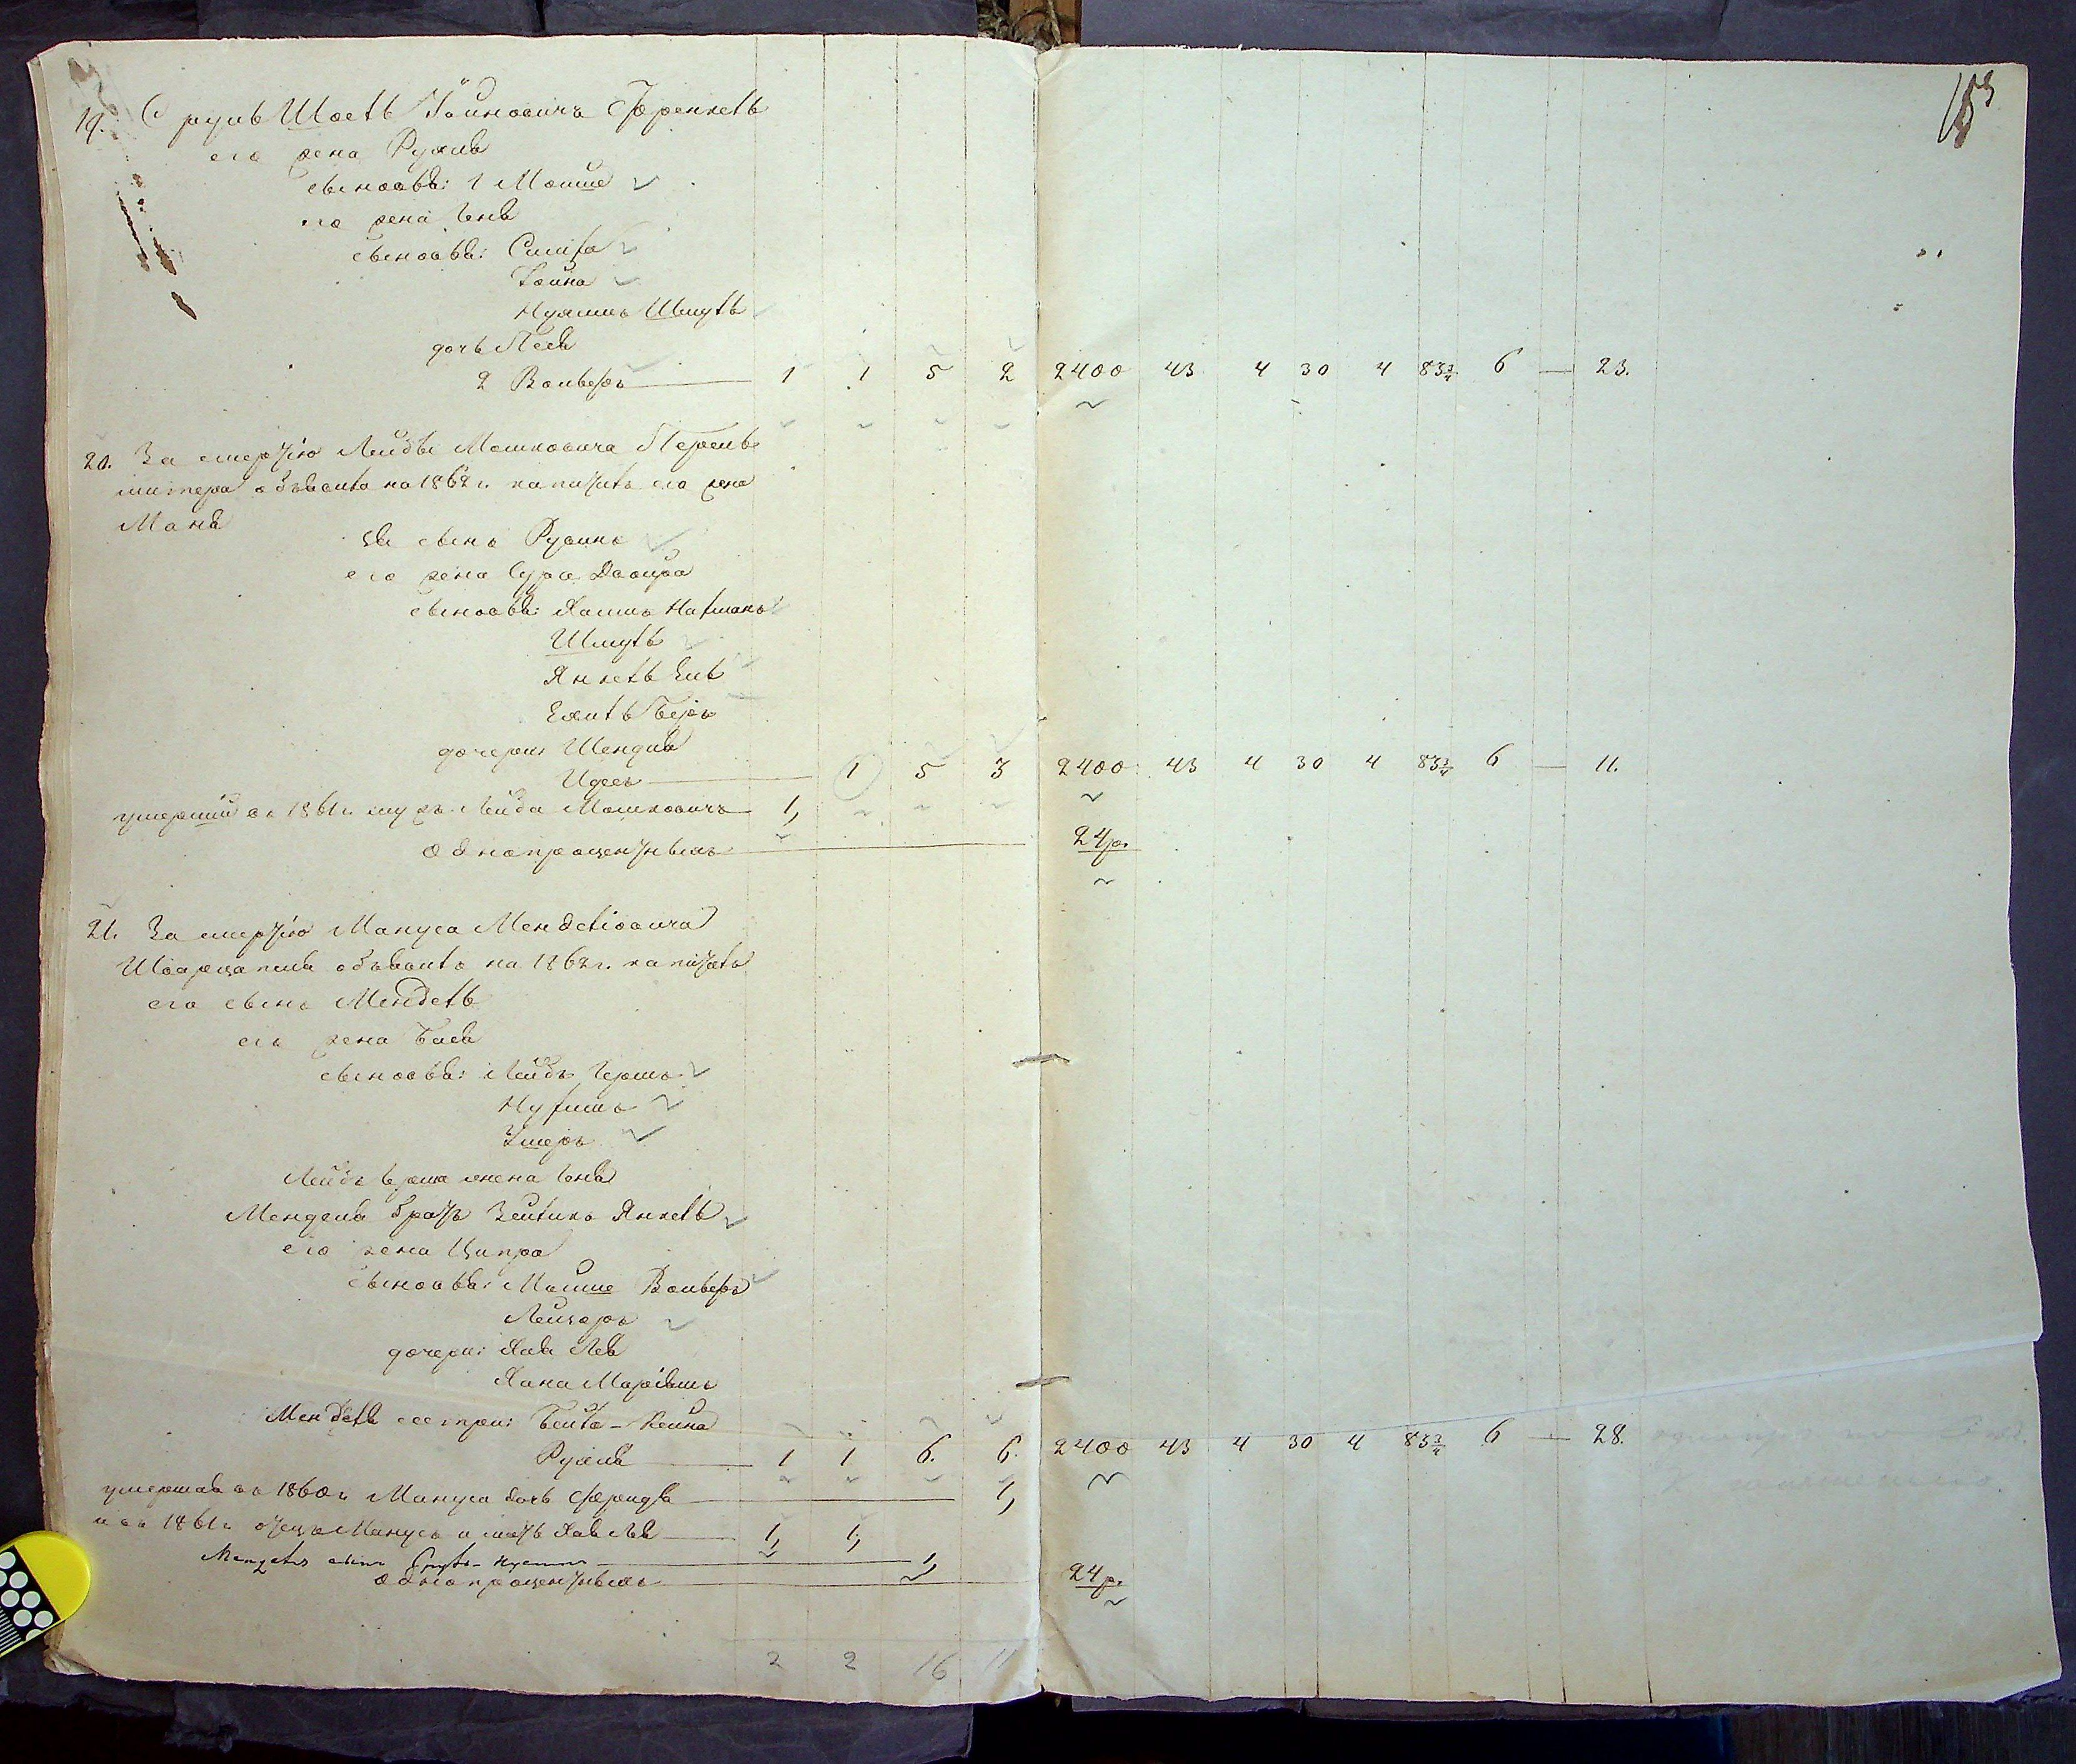 153
19. Сруль Шоель Хаимовичъ Френкель
его жена Рухля
сыновья: 1 Мошше
его жена Ент
сыновья: Симха
Хаимъ
Нухимъ Шмуль
дочь Песя
2 Вольфъ 1 1 5 2 2400 43 4 30 4 83¾ 6 — 23.
20. За смертію Лейбы Мошковича
объявилъ на 1862 г. капиталъ его жена
Маня
ея сынъ Рувинъ
его жена Сура Двойра
сыновья: Хаимъ Нахманъ
Шмуль
Янкель
Ехиль Беръ
дочери: Шендля
Идесъ 1 5 3 2400 43 4 30 4 83¾ 6 — 11.
умершій въ 1861 г. мужъ Лейба Мошковичъ 1,
однопроцентныхъ 24 р.
21. За смертію Мануса Менделіовича
объявилъ на 1862 г. капиталъ
его сынъ Мендель
его жена Бася
сыновья: Лейбъ Гершъ
Нухимъ
Ушеръ
Лейбъ Герша жена Ента
Менделя братъ Зейликъ Янкель
его жена Ципра
сыновья: Мошше Вольфъ
Лейзоръ
дочери: Хая Лея
Хана Маріямъ
Менделя сестры: Бейла-Рейна
Рухля 1 1 6. 6. 2400 43 4 30 4 83¾ 6 — 28.
умершая въ 1860 г. Мануса дочь Фрейда 1,
и въ 1861 г. отецъ Манусъ и мать Хая Лея 1, 1,
Менделя сынъ Сруль-Нухимъ 1,
однопроцентныхъ 24 р.
2 2 16 11